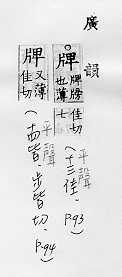 廣韻
牌 牌牓也薄佳切七
(平聲 十三佳, P.93)
牌 又薄佳切
(平聲 十四皆, 步皆切, P.94)